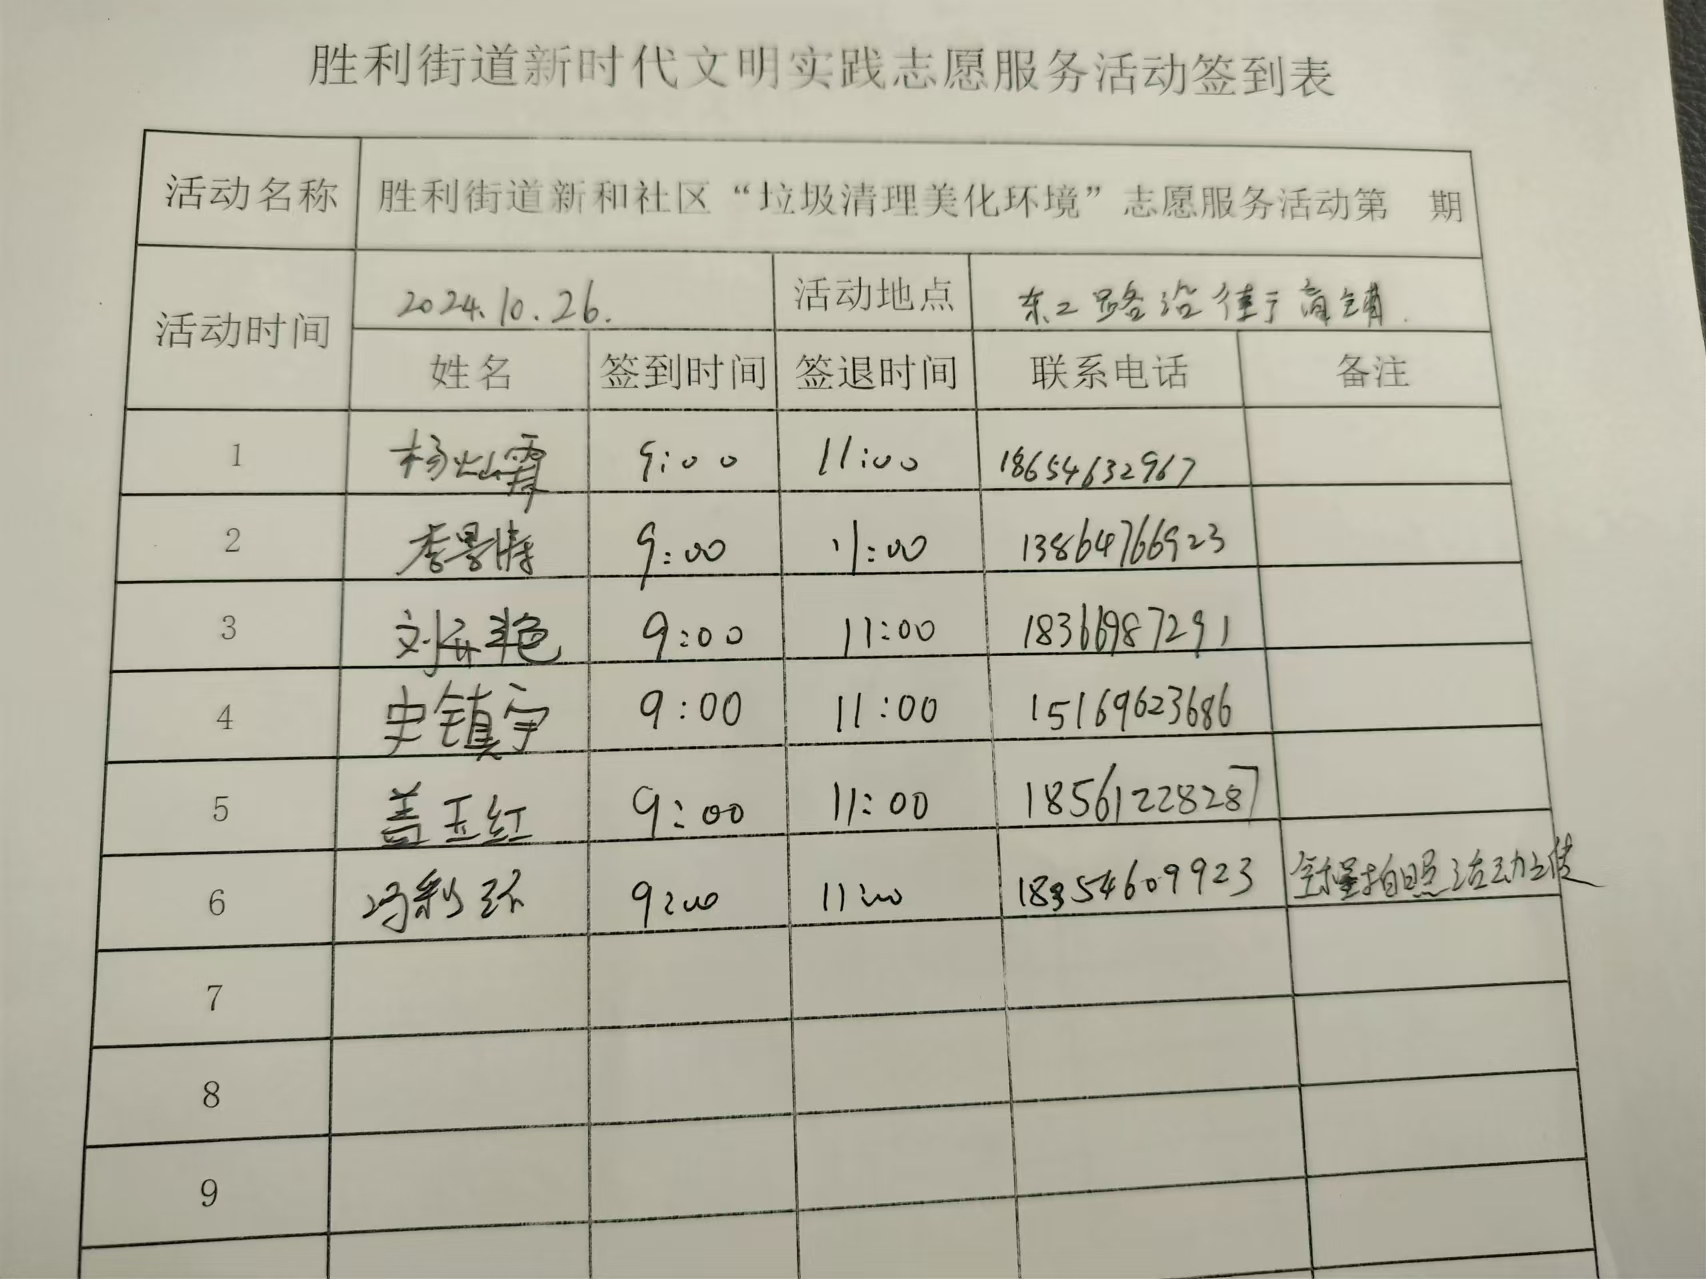 胜利街道新时代文明实践志愿服务活动签到表
活动名称 胜利街道新和社区“垃圾清理美化环境”志愿服务活动第 期
活动时间 2024.10.26. 活动地点 东二路沿街 商铺.
姓名 签到时间 签退时间 联系电话 备注
1 杨 霞 9:00 11:00 18654632967
2 李景 9:00 11:00 13864766923
3 刘 艳 9:00 11:00 18366987291
4 史镇宇 9:00 11:00 15169623686
5 盖玉红 9:00 11:00 18561228287
6 冯利环 9:00 11:00 18354609923 全程拍照活动上传
7
8
9